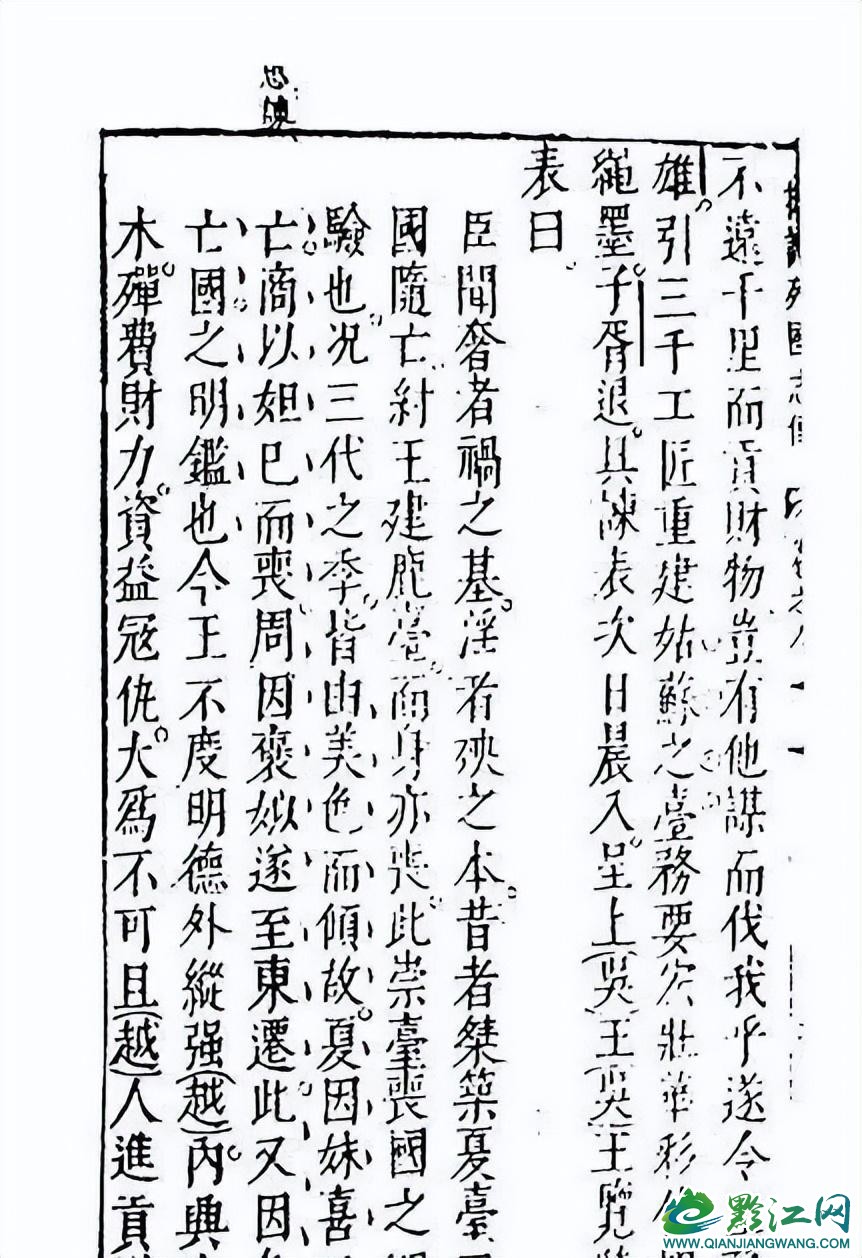 不遠千里而貢財物豈有他謀而伐我乎遂令
雄引三千工匠重建姑蘇之臺務要宏壯華彩
繩墨子胥退具諫表次日晨入呈上吳王吳王覽
表曰
臣聞奢者禍之基淫者殃之本昔者桀築夏臺
國隨亡紂王建鹿臺而身亦喪此崇臺喪國之
驗也况三代之季皆由美色而傾故夏因妹喜
亡商以妲巳而喪周因褒姒遂至東遷此又因
亡國之明鑑也今王不度明德外縱强越內興
木殫費財力資益冦仇大爲不可且越人進貢
黔江网
WWW.QIANJIANGWANG.COM